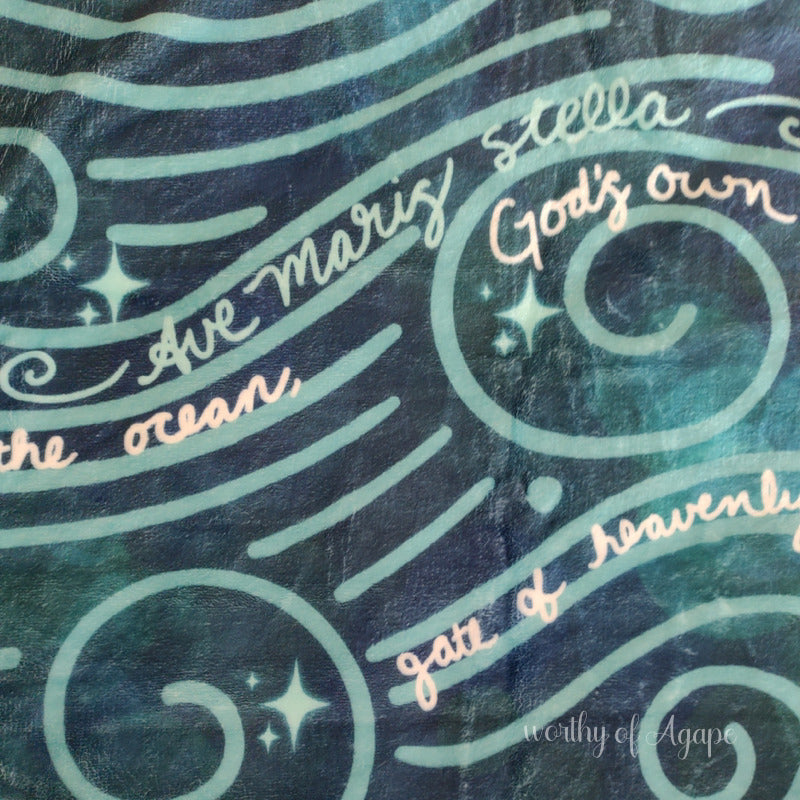 Ave Maris stella
God's own
the ocean,
gate of heavenly
worthy of Agape